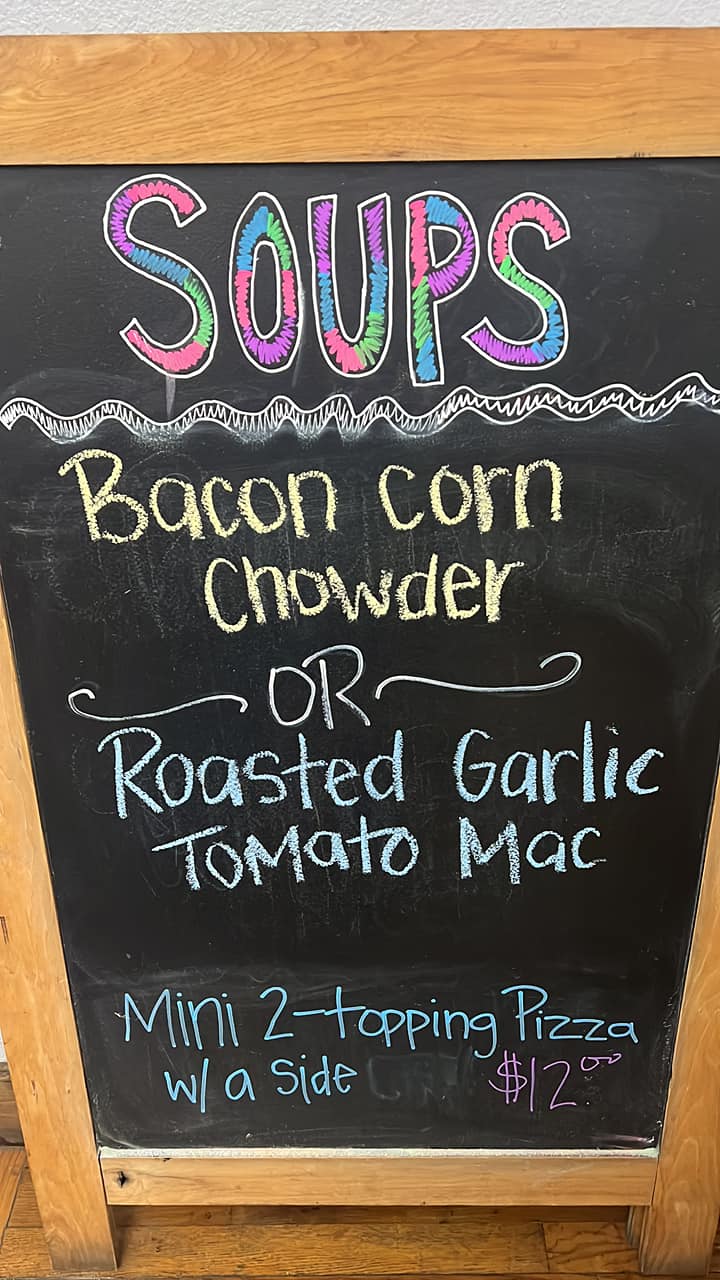 SOUPS
Bacon Corn
Chowder
OR
Roasted Garlic
Tomato Mac
Mini 2-topping Pizza
w/ a side $12.00